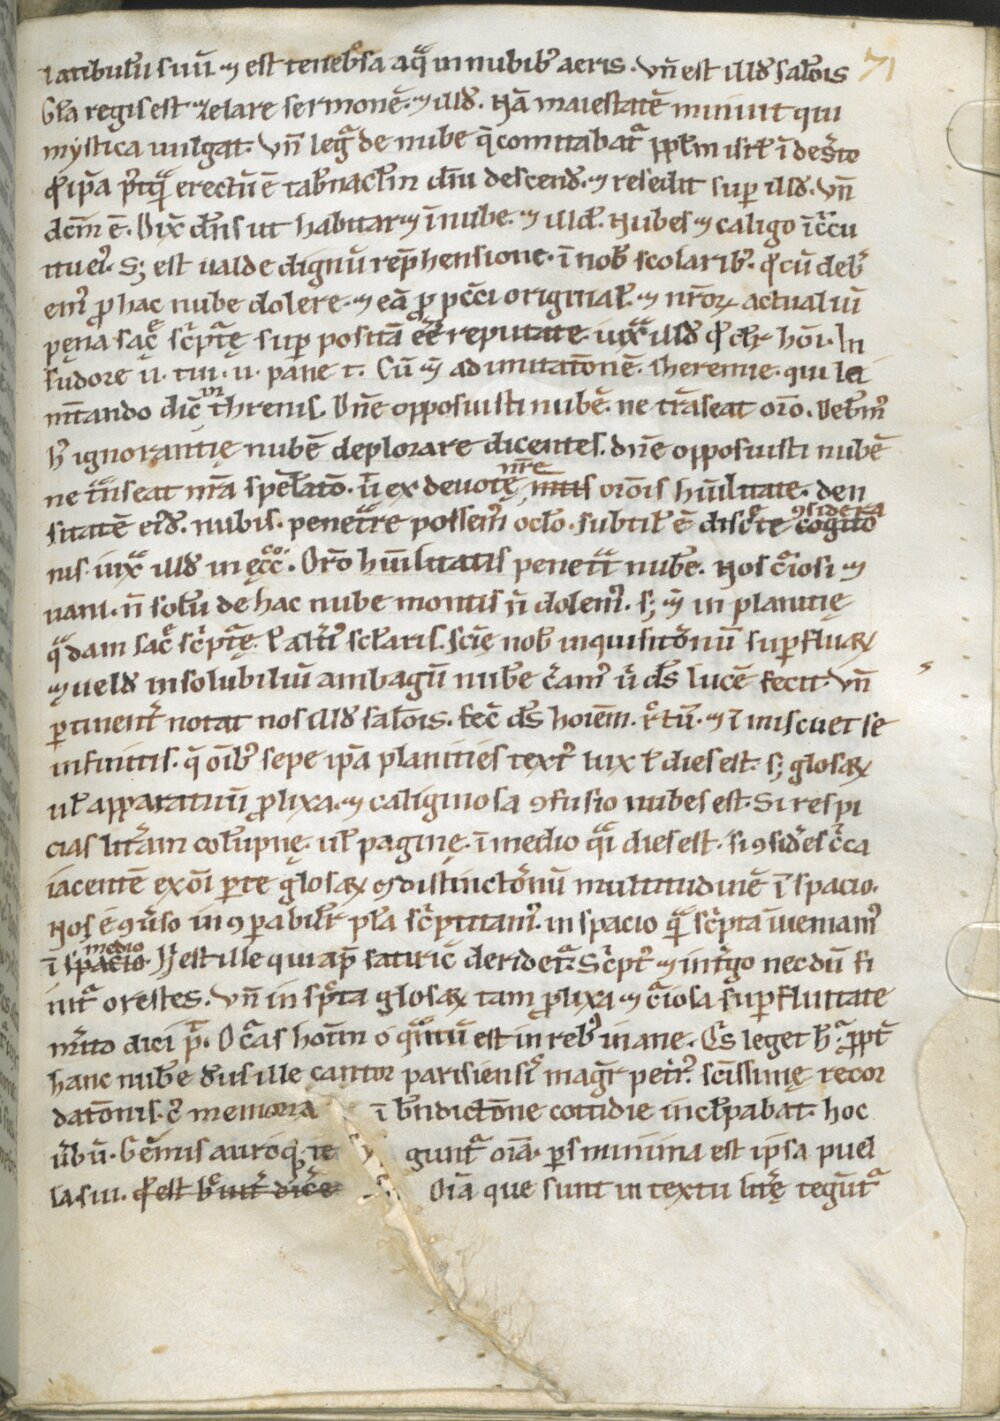 latibulu suu ⁊ est tenebsa aq in nubib aeris. Vn est illd salois
71
Gla regis est zelare sermone. ⁊ illd. Na maiestate minuit qui
mystica uulgat. Vn leg de nube q comitabat pplm isrl i desto
qd ipa ptq erectu e tabnaclm diu descend. ⁊ resedit sup illd. Vn
dcm e. Dix dns ut habitar ⁊ i nube. ⁊ illd. Nubes ⁊ caligo i ccu
itu ei. S; est ualde dignu rephensione. i nob scolarib. qd cu deb
em p hac nube dolere. ⁊ ea p pcci original. ⁊ nror actualiu
pena sac scpte sup posita ee reputate. iux illd qd dr homi. In
sudore u. tui. u. pane t. Cu ⁊ ad imitatone iheremie. qui la
mtando dic in threnis. Dne opposuisti nube. ne traseat oro. Debem
h ignorantie nube deplorare dicentes. dne opposuisti nube
ne tnseat nra spelato. ex deuote nre oronis humilitate. den
sitate eid. nubis. penetre possem oclo. subtil e discte ꝯsidera
nis. iux illd in ecc. Oro humilitatis penetat nube. Nos ciosi ⁊
uani. n solu de hac nube montis n dolem. s; ⁊ in planitie
q dam sac scpte. l alti sclaris. scie nob inquisitonu supfluar
⁊ ueld insolubiliu ambagu nube cam u ds luce fecit. Vn
ptinent notat nos illd salois. fec ds hoiem. rtu. ⁊ i miscuet se
infinitis. q oib sepe ipa planities text lux l dies est. s; glosar
ul apparatuu plixa. ⁊ caliginosa ꝯfusio nubes est. Si respi
cias litam colupne. ul pagine. i medio qi dies est. si ꝯsides cca
iacente ex oi pte glosar ⁊ distinctonu multitudine i spacio.
Nos e ꝯuso in ꝯpabilit pla scptitam. in spacio q scpta iueniam
i medio spacio. H est ille qui ap satiric derident. Scpt ⁊ in tgo necdu fi
nit orestes. Vn in spta glosar tam plixa ⁊ ciosa supfluitate
mito dici p. O cas hoim o qntu est in reb inane. Qs leget h. ppt
hanc nube diuis ille cantor parisiensis magr petr. scissime recor
datonis. ⁊ memoria i bndictone cottidie inclpabat. hoc
ubu. Gemis auroq; te gunt oia. ps minima est ipsa puel
la sui. qd est Oia que sunt in textu litte tegut